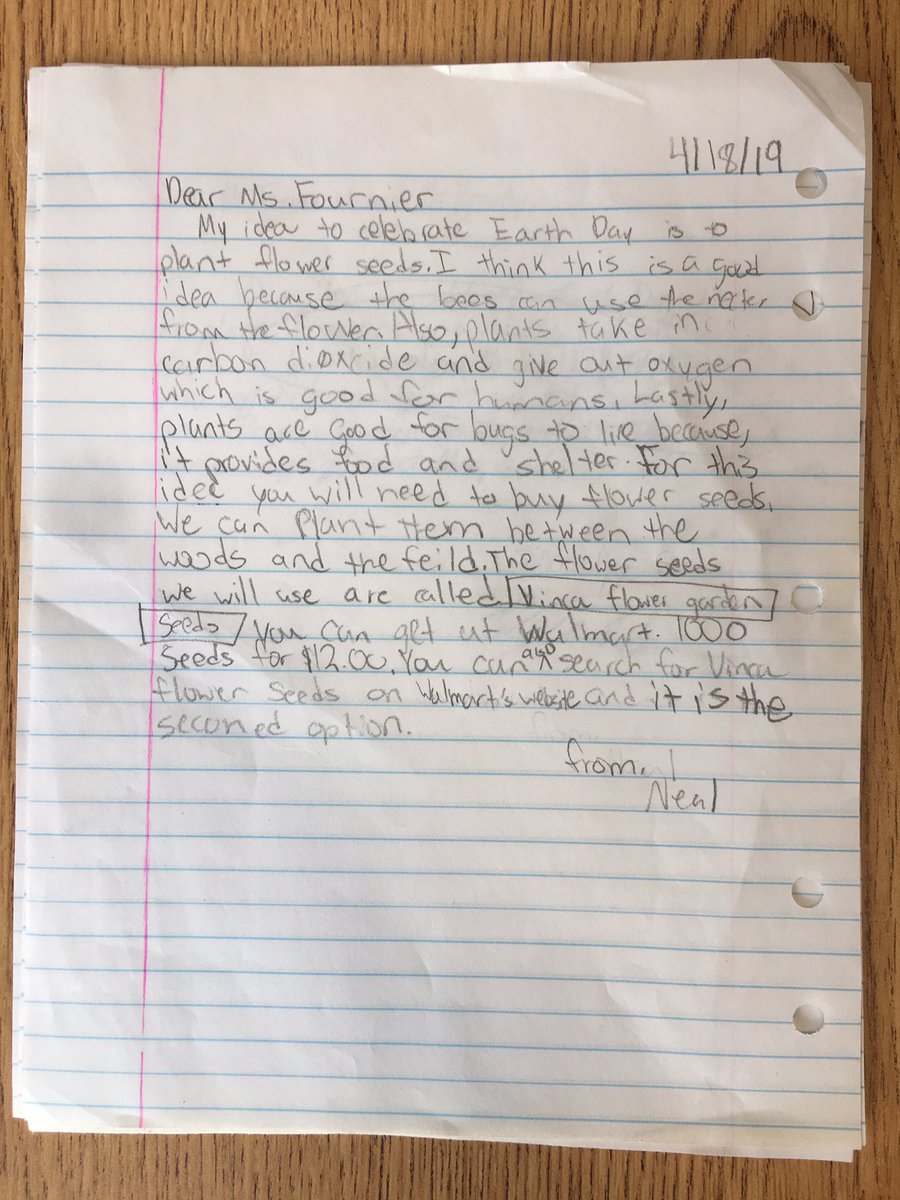 4/18/19
Dear Ms. Fournier
My idea to celebrate Earth Day is to
plant flower seeds. I think this is a good
idea because the bees can use the necter
from the flower. Also, plants take in
carbon dioxcide and give out oxygen
which is good for humans. Lastly,
plants are good for bugs to live because,
it provides food and shelter. For this
idee you will need to buy flower seeds.
We can Plant them between the
woods and the feild. The flower seeds
we will use are called Vinca flower garden
seeds you can get at Walmart. 1000
Seeds for $12.00. You can also search for Vinca
flower Seeds on Walmart's website and it is the
seconed option.
from,
Neal